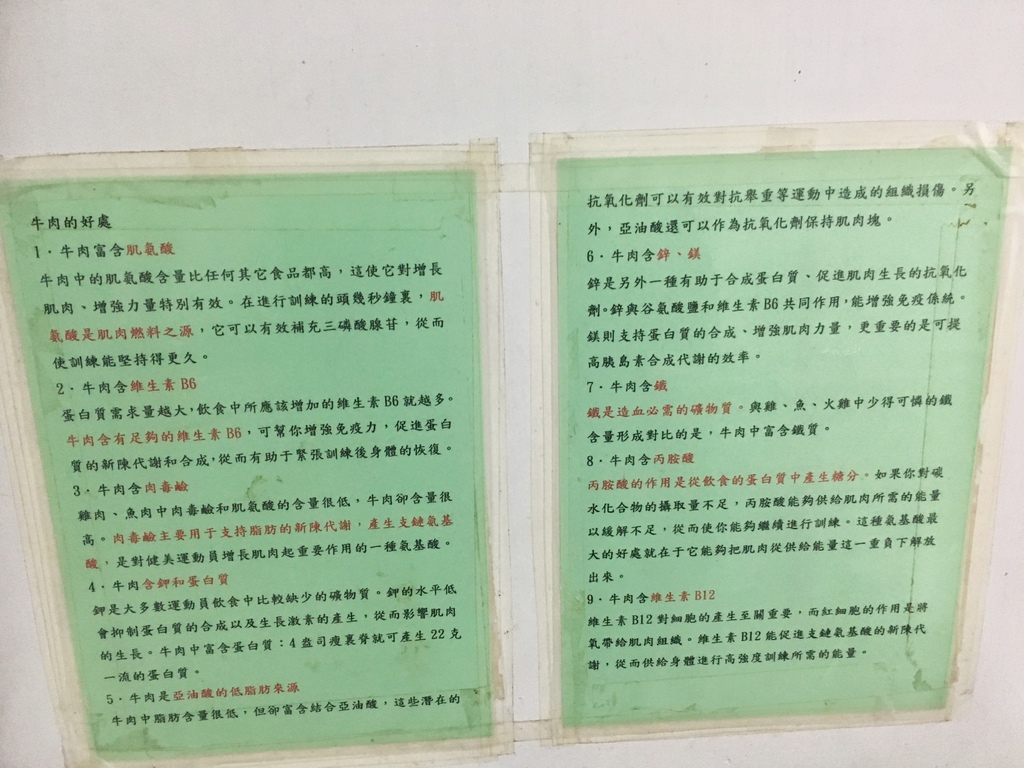 牛肉的好處
1．牛肉富含肌氨酸
牛肉中的肌氨酸含量比任何其它食品都高，這使它對增長
肌肉、增強力量特別有效。在進行訓練的頭幾秒鐘裏，肌
氨酸是肌肉燃料之源，它可以有效補充三磷酸腺苷，從而
使訓練能堅持得更久。
2．牛肉含維生素B6
蛋白質需求量越大，飲食中所應該增加的維生素B6就越多。
牛肉含有足夠的維生素B6，可幫你增強免疫力，促進蛋白
質的新陳代謝和合成，從而有助于緊張訓練後身體的恢復。
3．牛肉含肉毒鹼
雞肉、魚肉中肉毒鹼和肌氨酸的含量很低，牛肉卻含量很
高。肉毒鹼主要用于支持脂肪的新陳代謝，產生支鏈氨基
酸，是對健美運動員增長肌肉起重要作用的一種氨基酸。
4．牛肉含鉀和蛋白質
鉀是大多數運動員飲食中比較缺少的礦物質。鉀的水平低
會抑制蛋白質的合成以及生長激素的產生，從而影響肌肉
的生長。牛肉中富含蛋白質：4盎司瘦裏脊就可產生22克
一流的蛋白質。
5．牛肉是亞油酸的低脂肪來源
牛肉中脂肪含量很低，但卻富含結合亞油酸，這些潛在的
抗氧化劑可以有效對抗舉重等運動中造成的組織損傷。另
外，亞油酸還可以作為抗氧化劑保持肌肉塊。
6．牛肉含鋅、鎂
鋅是另外一種有助于合成蛋白質、促進肌肉生長的抗氧化
劑。鋅與谷氨酸鹽和維生素B6共同作用，能增強免疫係統。
鎂則支持蛋白質的合成、增強肌肉力量，更重要的是可提
高胰島素合成代謝的效率。
7．牛肉含鐵
鐵是造血必需的礦物質。與雞、魚、火雞中少得可憐的鐵
含量形成對比的是，牛肉中富含鐵質。
8．牛肉含丙胺酸
丙胺酸的作用是從飲食的蛋白質中產生糖分。如果你對碳
水化合物的攝取量不足，丙胺酸能夠供給肌肉所需的能量
以緩解不足，從而使你能夠繼續進行訓練。這種氨基酸最
大的好處就在于它能夠把肌肉從供給能量這一重負下解放
出來。
9．牛肉含維生素B12
維生素B12對細胞的產生至關重要，而紅細胞的作用是將
氧帶給肌肉組織。維生素B12能促進支鏈氨基酸的新陳代
謝，從而供給身體進行高強度訓練所需的能量。